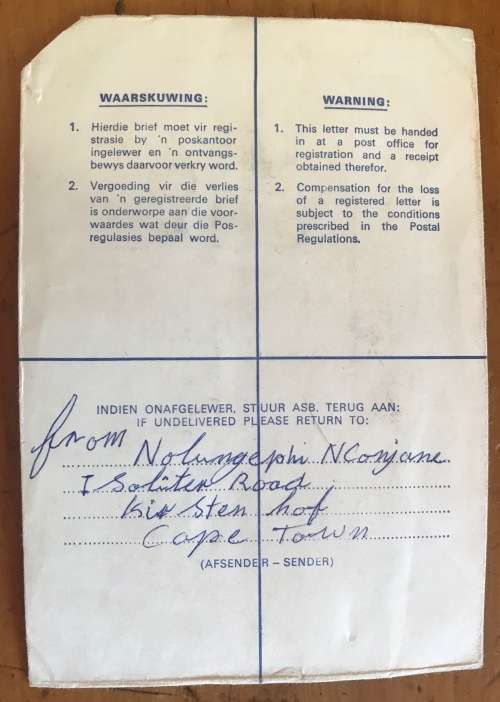 WAARSKUWING:
1. Hierdie brief moet vir regi-
strasie by 'n poskantoor
ingelewer en 'n ontvangs-
bewys daarvoor verkry word.
2. Vergoeding vir die verlies
van 'n geregistreerde brief
is onderworpe aan die voor-
waardes wat deur die Pos-
regulasies bepaal word.
WARNING:
1. This letter must be handed
in at a post office for
registration and a receipt
obtained therefor.
2. Compensation for the loss
of a registered letter is
subject to the conditions
prescribed in the Postal
Regulations.
INDIEN ONAFGELEWER, STUUR ASB. TERUG AAN:
IF UNDELIVERED PLEASE RETURN TO:
from Nolungephi NConjane
I Soliter Road
Kirsten hof
Cape Town
(AFSENDER – SENDER)